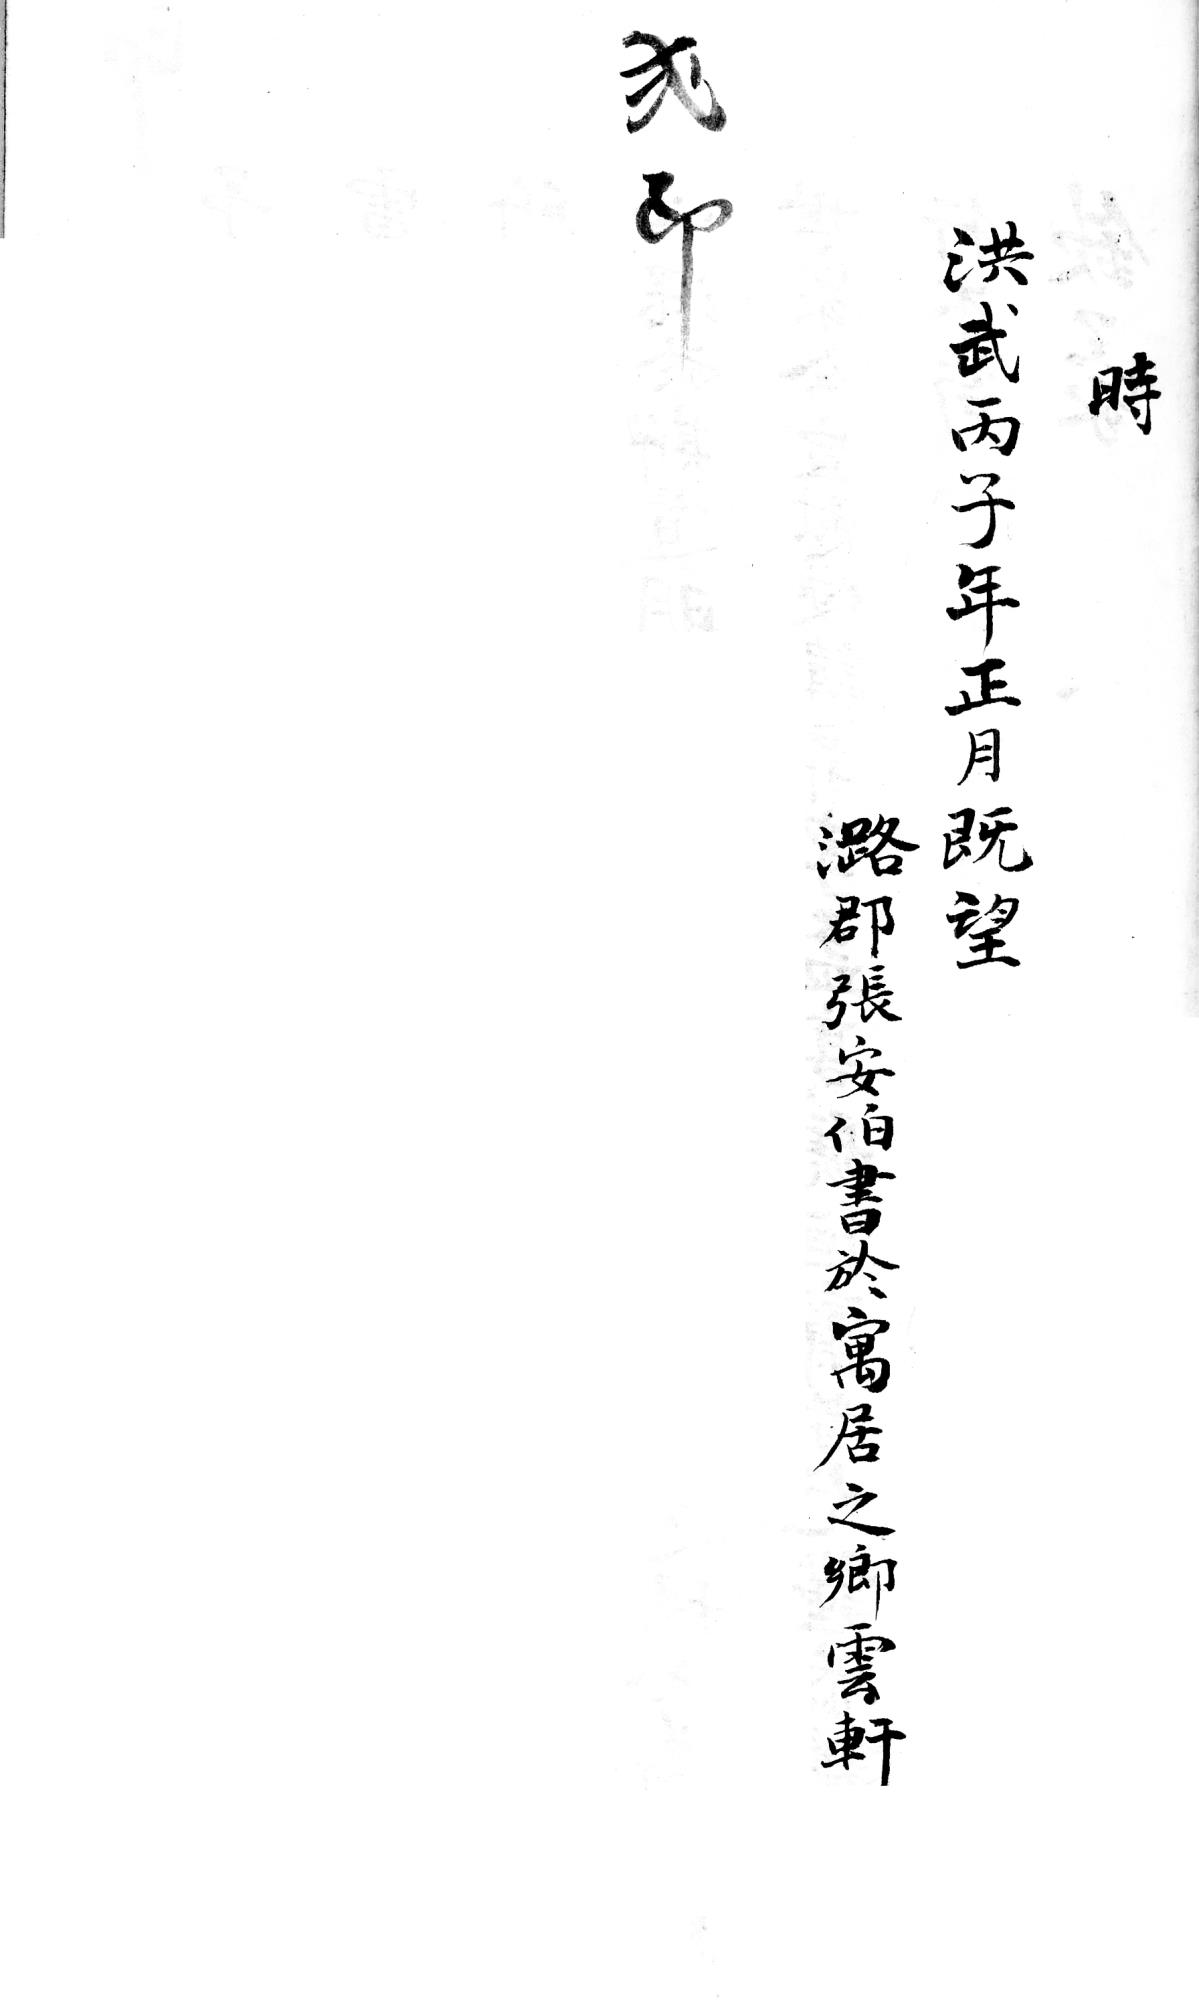 時
洪武丙子年正月既望
潞郡張安伯書於寓居之鄉雲軒
弍印